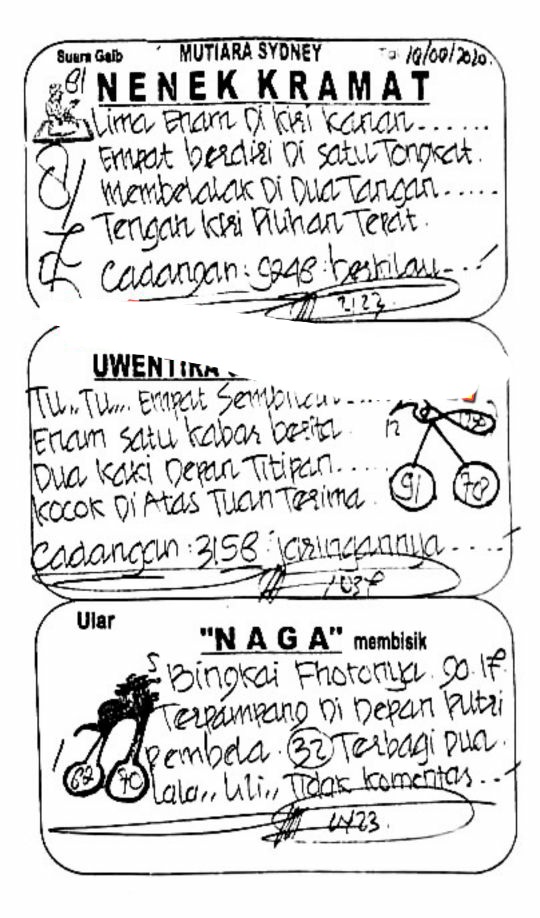 Suara Gaib MUTIARA SYDNEY
NENEK KRAMAT
Lima Enam Di kiri kanan.......
Empat berdiri Di satu Tongkat.
membelalak Di Dua Tangan.....
Tengah kiri Pilihan Tepat.
Cadangan: 9248
2123.
UWENTIRA
Tu,,Tu,,, Empat
Enam satu kabar berita
Dua kaki Depan Titipan.....
kocok Di Atas Tuan Terima.
12
91 78
Cadangan: 3158: jaringannya....
Ular
"NAGA" membisik
5 Bingkai Fhotonya. 90.17.
Terpampang Di Depan Putri
pembela. 32 Terbagi Dua.
lala,, lili,, Tidak komentar...
62 70